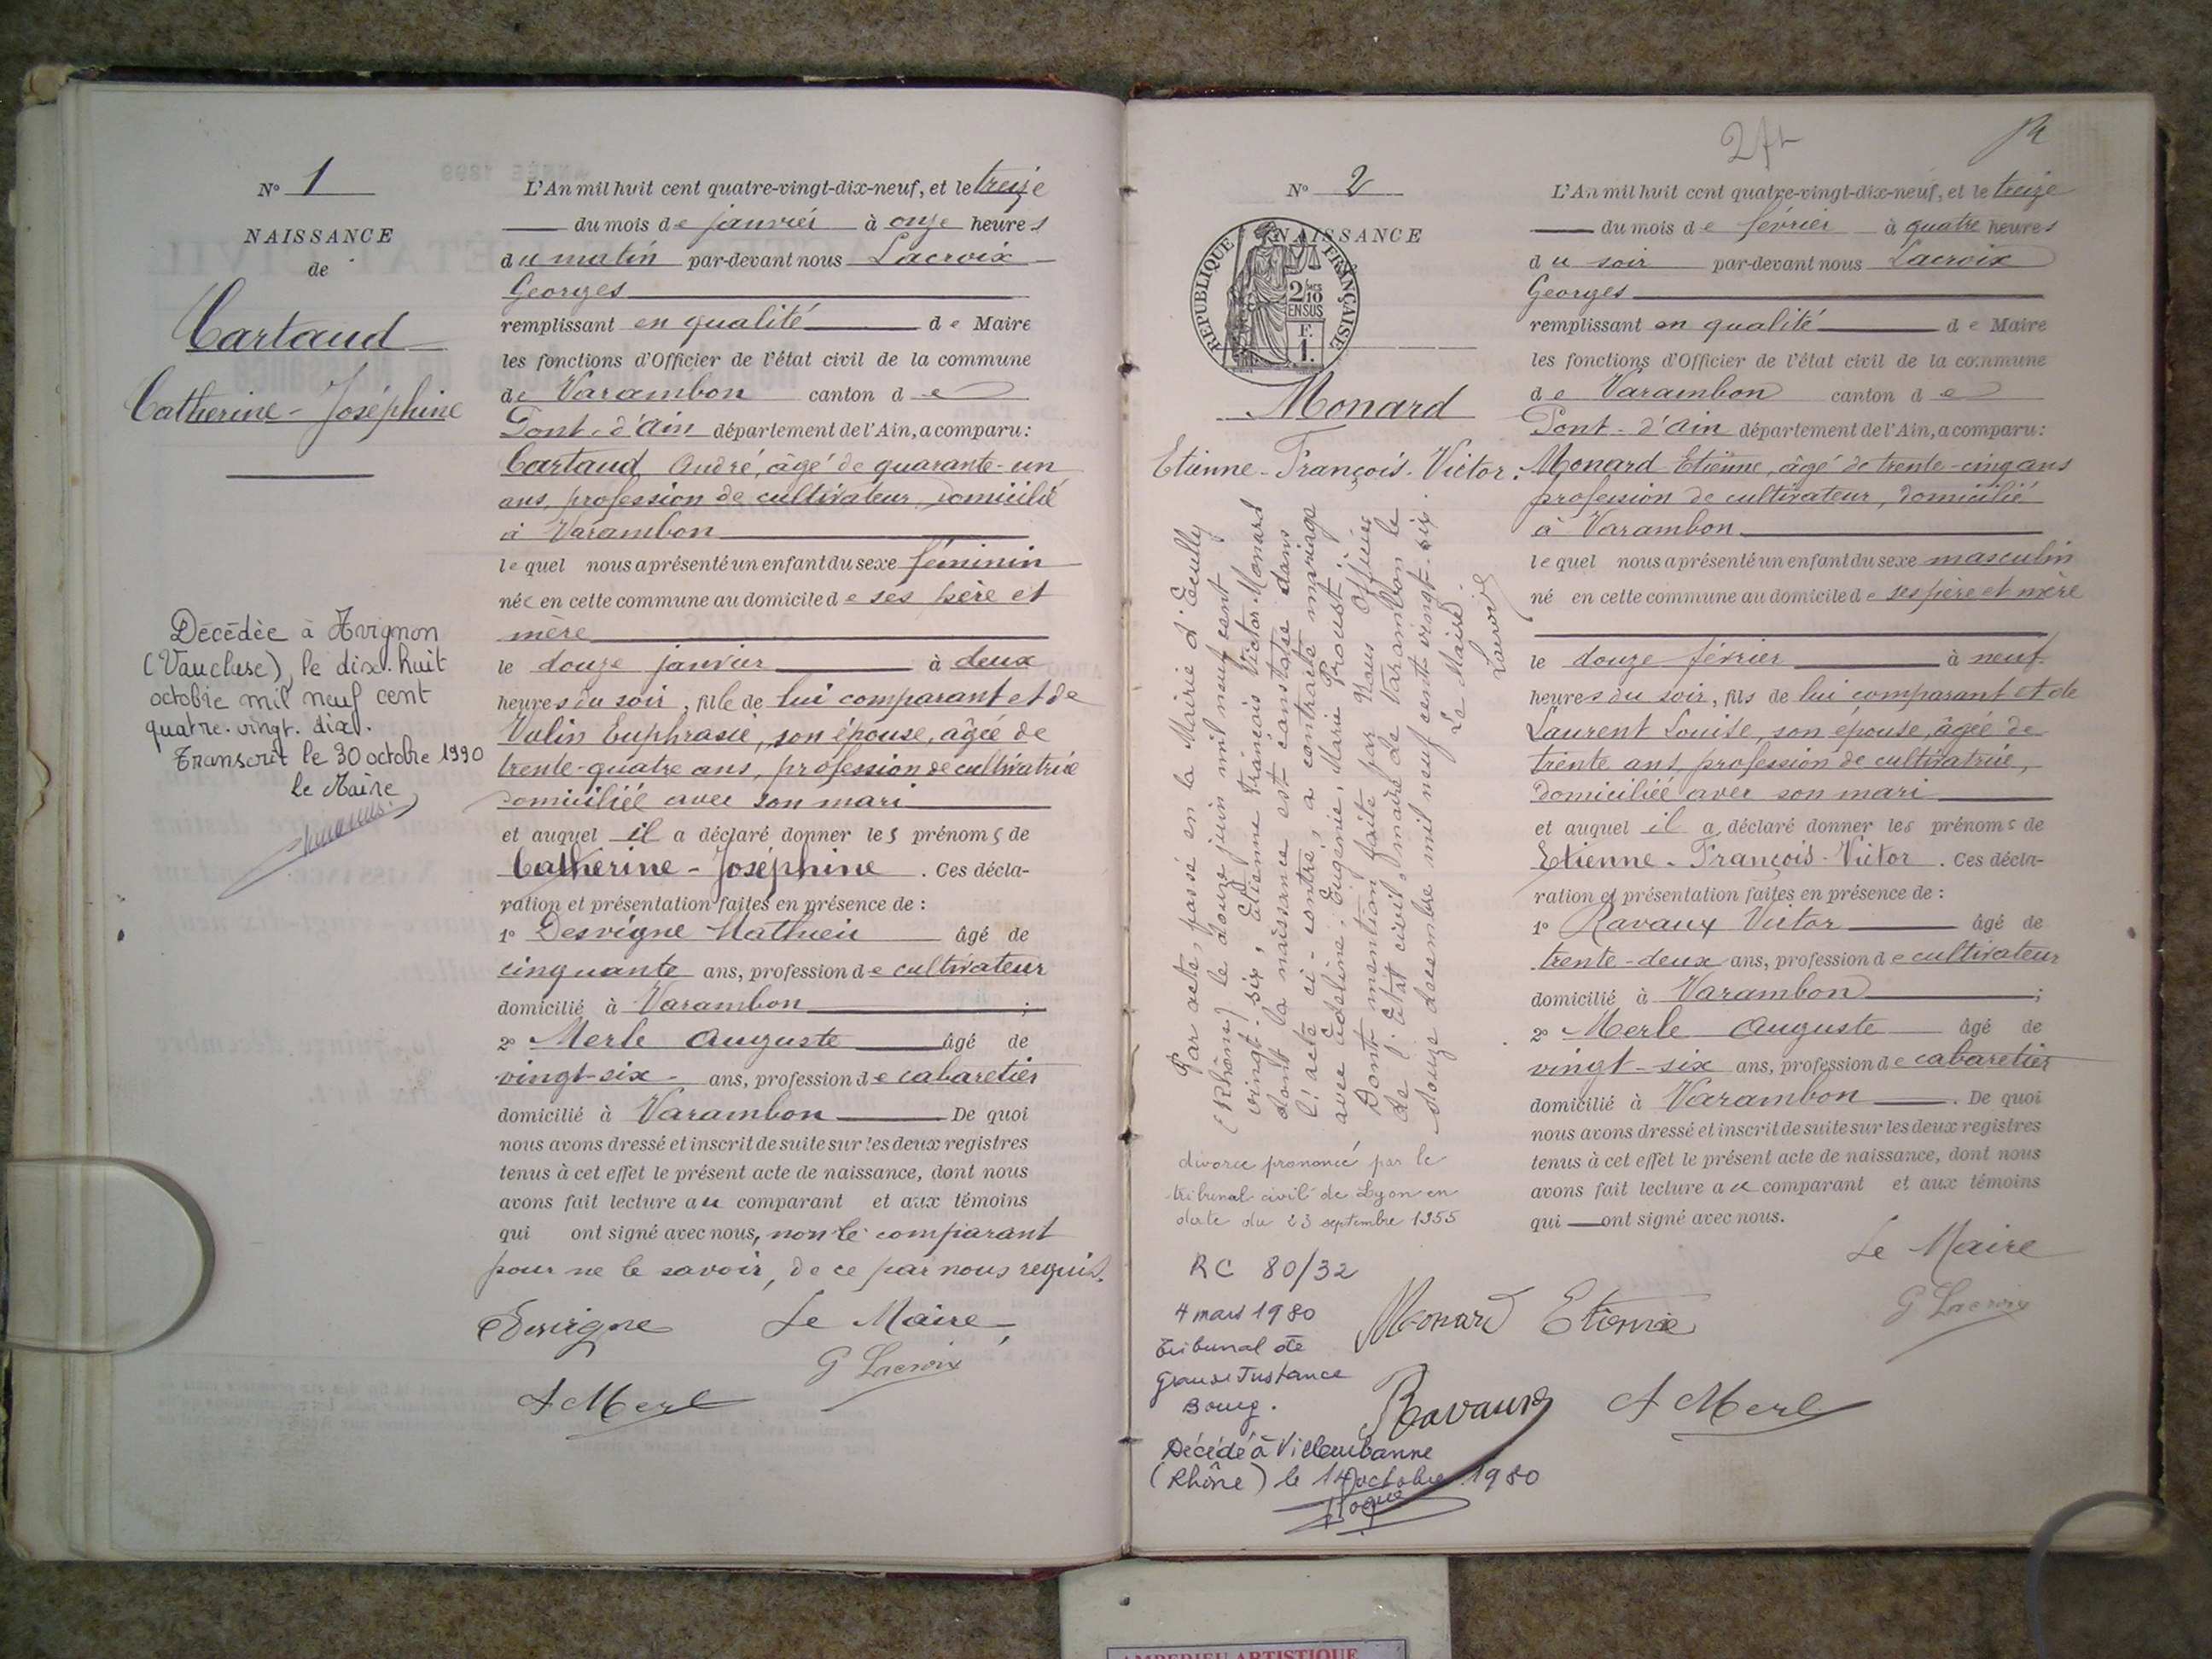 N° 1
NAISSANCE
de
Cartaud
Catherine-Joséphine
Décédée à Avignon
(Vaucluse), le dix-huit
octobre mil neuf cent
quatre-vingt-dix.
Transcrit le 30 octobre 1990
le Maire
L'An mil huit cent quatre-vingt-dix-neuf, et le treize
du mois de janvier à onze heures
du matin par-devant nous Lacroix
Georges
remplissant en qualité de Maire
les fonctions d'Officier de l'état civil de la commune
de Varambon canton de
Pont-d'Ain département de l'Ain, a comparu:
Cartaud André, âgé de quarante-un
ans, profession de cultivateur, domicilié
à Varambon
lequel nous a présenté un enfant du sexe féminin
née en cette commune au domicile de ses père et
mère
le douze janvier à deux
heures du soir, fille de lui comparant et de
Vulin Euphrasie, son épouse, âgée de
trente-quatre ans, profession de cultivatrice
domiciliée avec son mari
et auquel il a déclaré donner les prénoms de
Catherine-Joséphine. Ces décla-
ration et présentation faites en présence de :
1° Desvigne Mathieu âgé de
cinquante ans, profession de cultivateur
domicilié à Varambon ;
2° Merle Auguste âgé de
vingt-six ans, profession de cabaretier
domicilié à Varambon De quoi
nous avons dressé et inscrit de suite sur les deux registres
tenus à cet effet le présent acte de naissance, dont nous
avons fait lecture au comparant et aux témoins
qui ont signé avec nous, non le comparant
pour ne le savoir, de ce par nous requis.
Desvigne Le Maire,
G Lacroix
A Merle
N° 2
NAISSANCE
REPUBLIQUE FRANÇAISE
2/10
EN SUS
F.
1.
Monard
Etienne-François-Victor.
Par acte, passé en la Mairie d'Ecully
(Rhône) le douze juin mil neuf cent
vingt-six, Etienne François Victor Monard
dont la naissance est constatée dans
l'acte ci-contre, a contracté mariage
avec Adeline, Eugénie, Marie Proust;
Dont mention faite par Nous Officier
de l'Etat civil, maire de Varambon le
douze décembre mil neuf cent vingt-six.
Le Maire.
Lacroix
divorce prononcé par le
tribunal civil de Lyon en
date du 23 septembre 1955
RC 80/32
4 mars 1980
Tribunal de
Grande Instance
Bourg.
Décédé à Villeurbanne
(Rhône) le 14 octobre 1980
L'An mil huit cent quatre-vingt-dix-neuf, et le treize
du mois de février à quatre heures
du soir par-devant nous Lacroix
Georges
remplissant en qualité de Maire
les fonctions d'Officier de l'état civil de la commune
de Varambon canton de
Pont-d'Ain département de l'Ain, a comparu:
Monard Etienne, âgé de trente-cinq ans
profession de cultivateur, domicilié
à Varambon
lequel nous a présenté un enfant du sexe masculin
né en cette commune au domicile de ses père et mère
le douze février à neuf
heures du soir, fils de lui comparant et de
Laurent Louise, son épouse, âgée de
trente ans, profession de cultivatrice,
domiciliée avec son mari
et auquel il a déclaré donner les prénoms de
Etienne-François-Victor. Ces décla-
ration et présentation faites en présence de :
1° Ravaux Victor âgé de
trente-deux ans, profession de cultivateur
domicilié à Varambon ;
2° Merle Auguste âgé de
vingt-six ans, profession de cabaretier
domicilié à Varambon. De quoi
nous avons dressé et inscrit de suite sur les deux registres
tenus à cet effet le présent acte de naissance, dont nous
avons fait lecture au comparant et aux témoins
qui ont signé avec nous.
Le Maire
Monard Etienne G Lacroix
Ravaux A Merle
AMBERIEU ARTISTIQUE